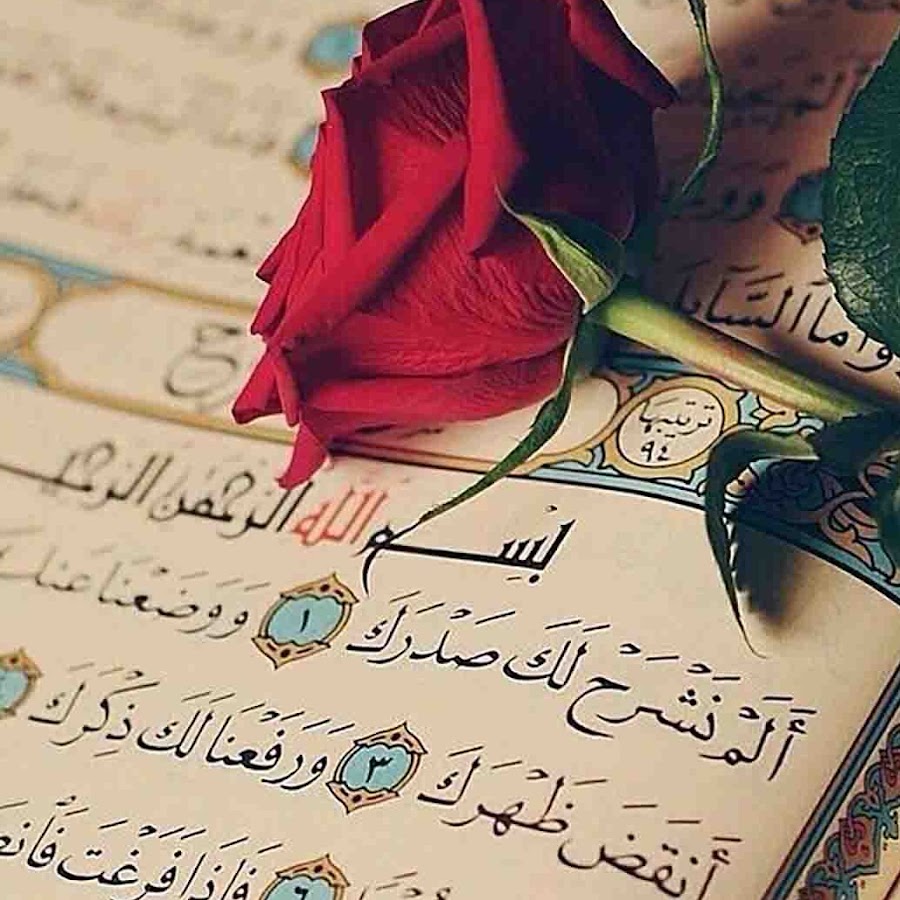 أَلَمْ
وَوَ
وَأَمَّا السَّآئِلَ
ترتيبها
٩٤
بِسْمِ اللَّهِ الرَّحْمَٰنِ الرَّحِيمِ
أَلَمْ نَشْرَحْ لَكَ صَدْرَكَ ١ وَوَضَعْنَا عَنكَ
أَنقَضَ ظَهْرَكَ ٣ وَرَفَعْنَا لَكَ ذِكْرَكَ
٦ فَإِذَا فَرَغْتَ فَانصَ